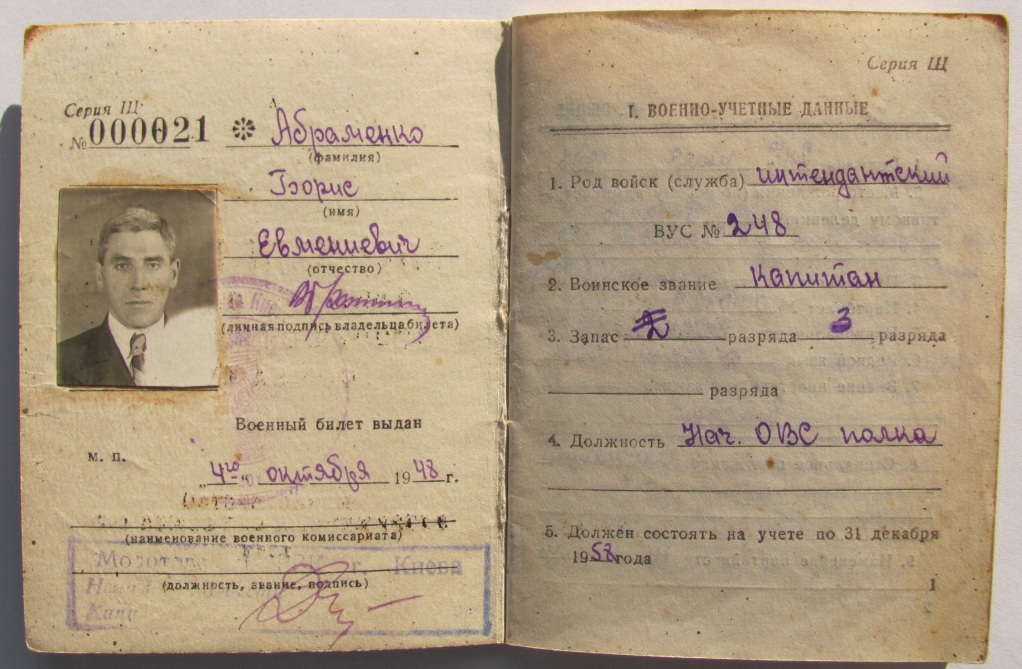 Серия Щ
№ 000021
Абраменко
(фамилия)
Борис
(имя)
Евмениевич
(отчество)
(личная подпись владельца билета)
Военный билет выдан
м. п.
„4го" октября 1948 г.
(наименование военного комиссариата)
г. Киева
(должность, звание, подпись)
Серия Щ
I. ВОЕННО-УЧЕТНЫЕ ДАННЫЕ
1. Род войск (служба) интендантский
ВУС № 248
2. Воинское звание Капитан
3. Запас 2 разряда 3 разряда
разряда
4. Должность Нач. ОВС полка
5. Должен состоять на учете по 31 декабря
1957 года
1